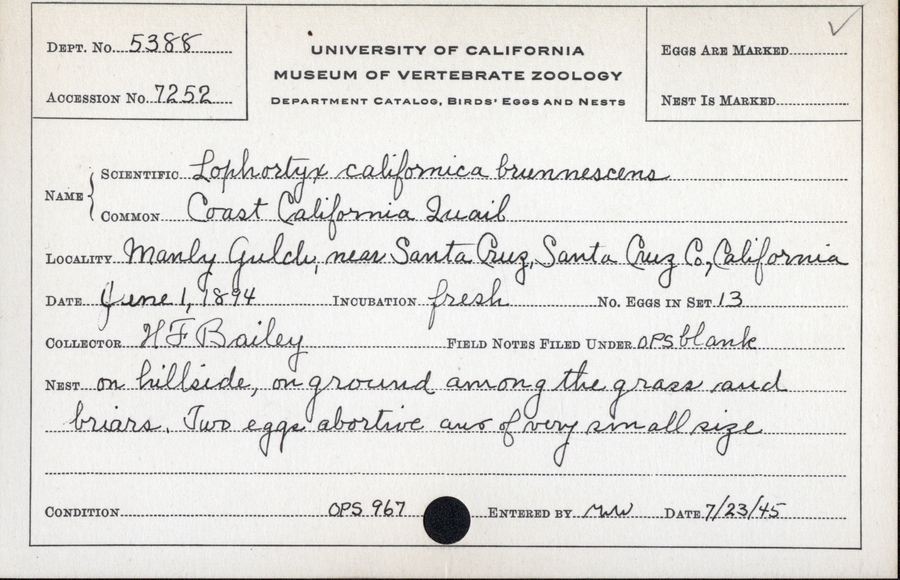 DEPT. No. 5388
ACCESSION No. 7252
UNIVERSITY OF CALIFORNIA
MUSEUM OF VERTEBRATE ZOOLOGY
DEPARTMENT CATALOG, BIRDS' EGGS AND NESTS
EGGS ARE MARKED
NEST IS MARKED
NAME
SCIENTIFIC Lophortyx californica brunnescens
COMMON Coast California Quail
LOCALITY Manly Gulch, near Santa Cruz, Santa Cruz Co, California
DATE June 1, 1894 INCUBATION fresh No. EGGS IN SET 13
COLLECTOR H F Bailey FIELD NOTES FILED UNDER OPS blank
NEST on hillside, on ground among the grass and
briars. Two eggs abortive and of very small size
CONDITION OPS 967 ENTERED BY MW DATE 7/23/45